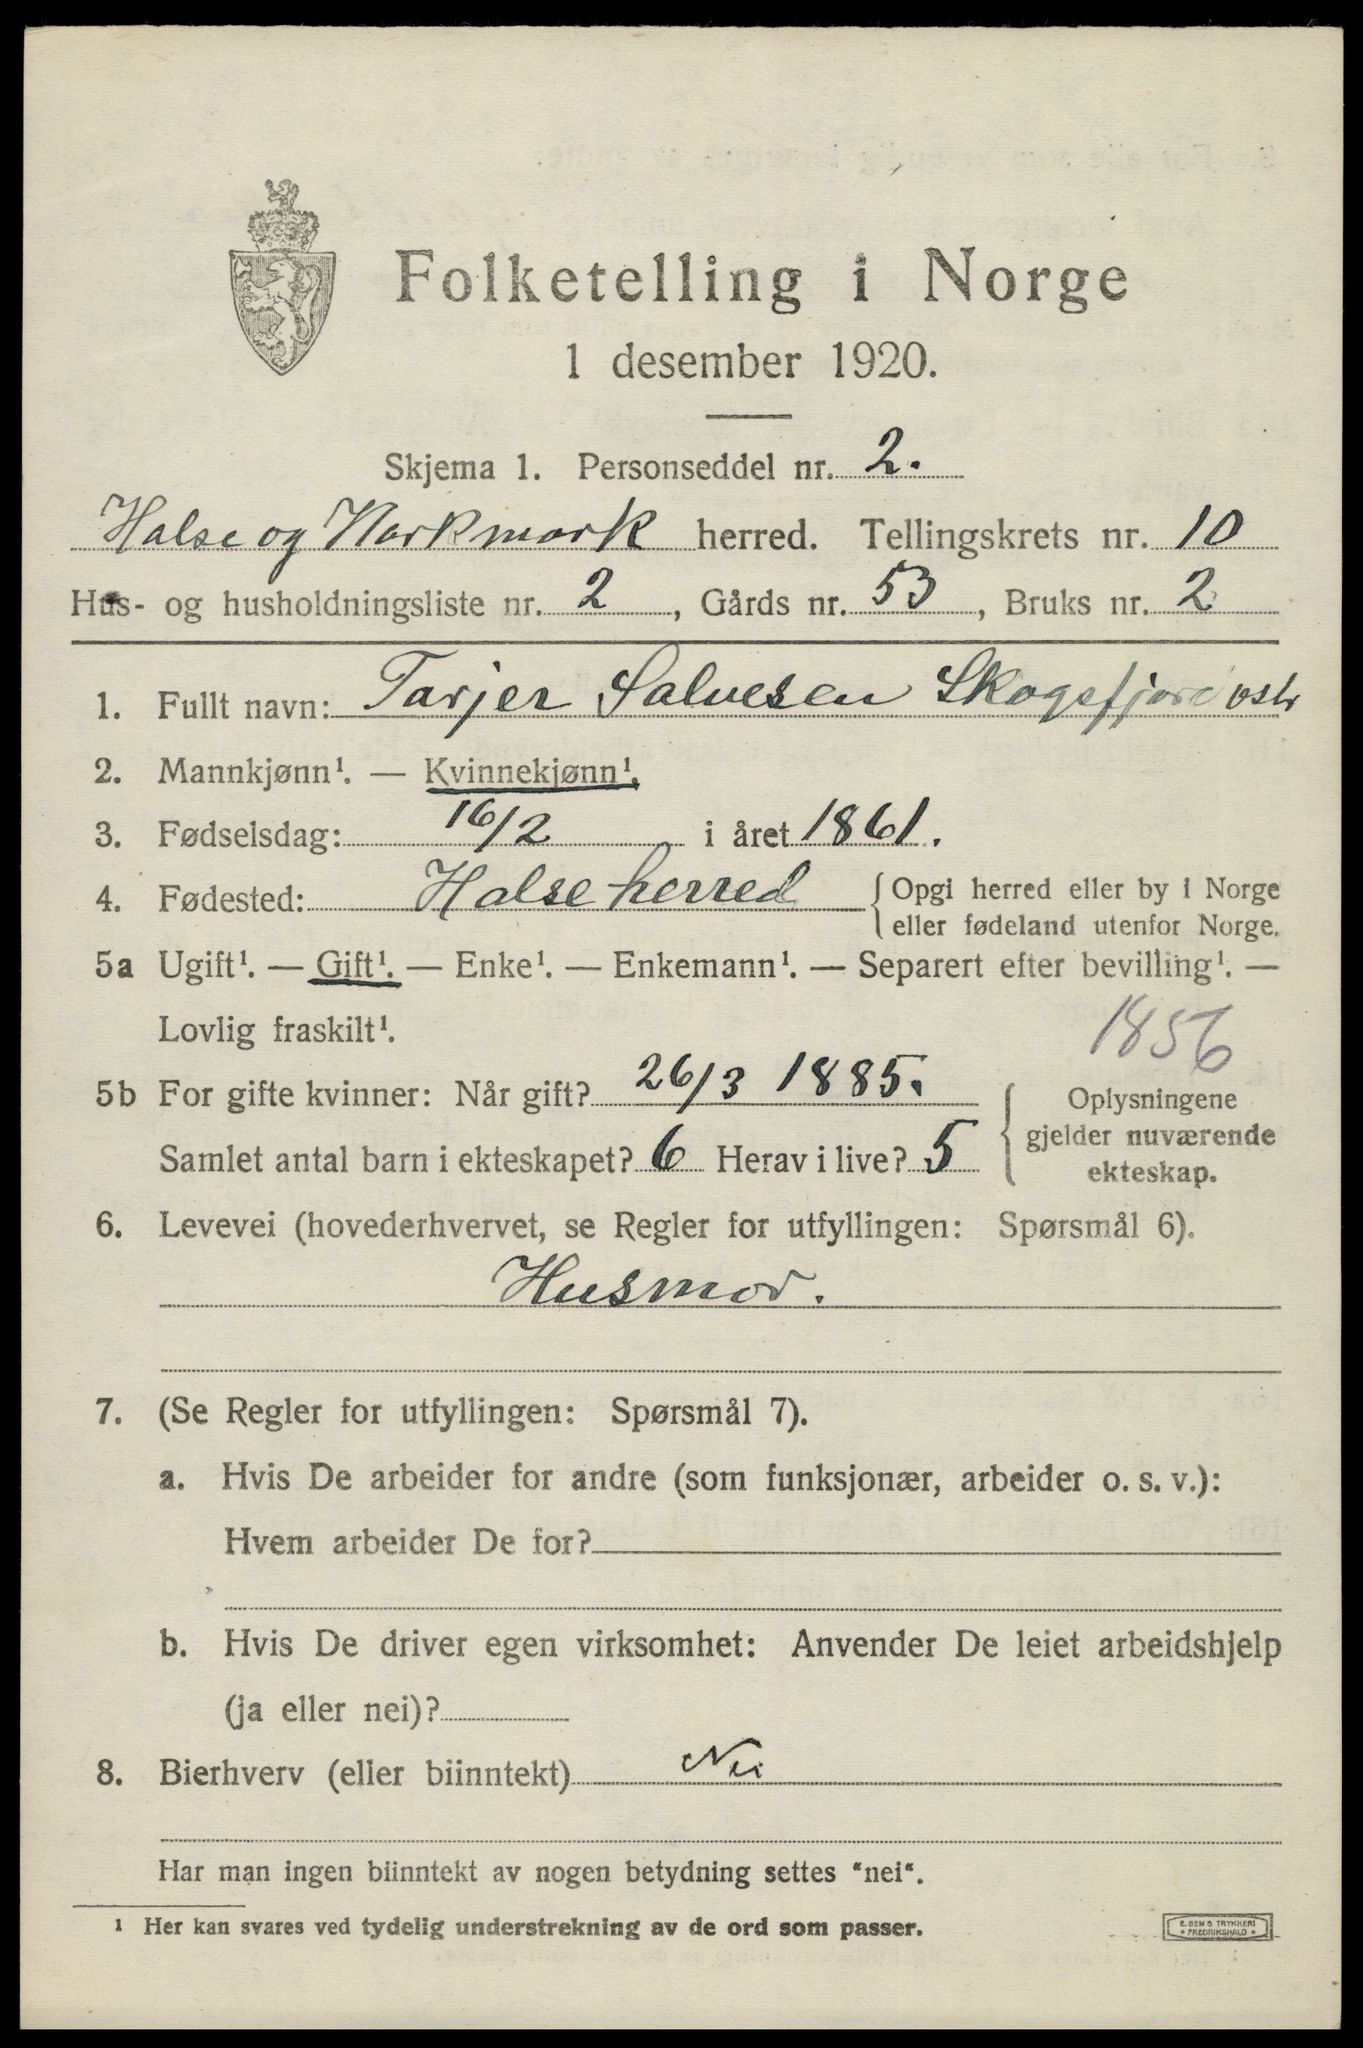 Folketelling i Norge
1 desember 1920.
Skjema 1. Personseddel nr. 2.
Halse og Harkmark herred. Tellingskrets nr. 10
Hus- og husholdningsliste nr. 2, Gårds nr. 53, Bruks nr. 2
1. Fullt navn: Tarjer Salvesen Skogsfjord
2. Mannkjønn¹. — Kvinnekjønn¹.
3. Fødselsdag: 16/2 i året 1861.
4. Fødested: Halse herred {Opgi herred eller by i Norge
eller fødeland utenfor Norge.
5a Ugift¹. — Gift¹. — Enke¹. — Enkemann¹. — Separert efter bevilling¹. —
Lovlig fraskilt¹.
1856
5b For gifte kvinner: Når gift? 26/3 1885.
Samlet antal barn i ekteskapet? 6 Herav i live? 5
Oplysningene
gjelder nuværende
ekteskap.
6. Levevei (hovederhvervet, se Regler for utfyllingen: Spørsmål 6).
Husmor.
7. (Se Regler for utfyllingen: Spørsmål 7).
a. Hvis De arbeider for andre (som funksjonær, arbeider o. s. v.):
Hvem arbeider De for?
b. Hvis De driver egen virksomhet: Anvender De leiet arbeidshjelp
(ja eller nei)?
8. Bierhverv (eller biinntekt) Nei
Har man ingen biinntekt av nogen betydning settes "nei".
¹ Her kan svares ved tydelig understrekning av de ord som passer.
E. SEMS TRYKKERI
FREDRIKSHALD